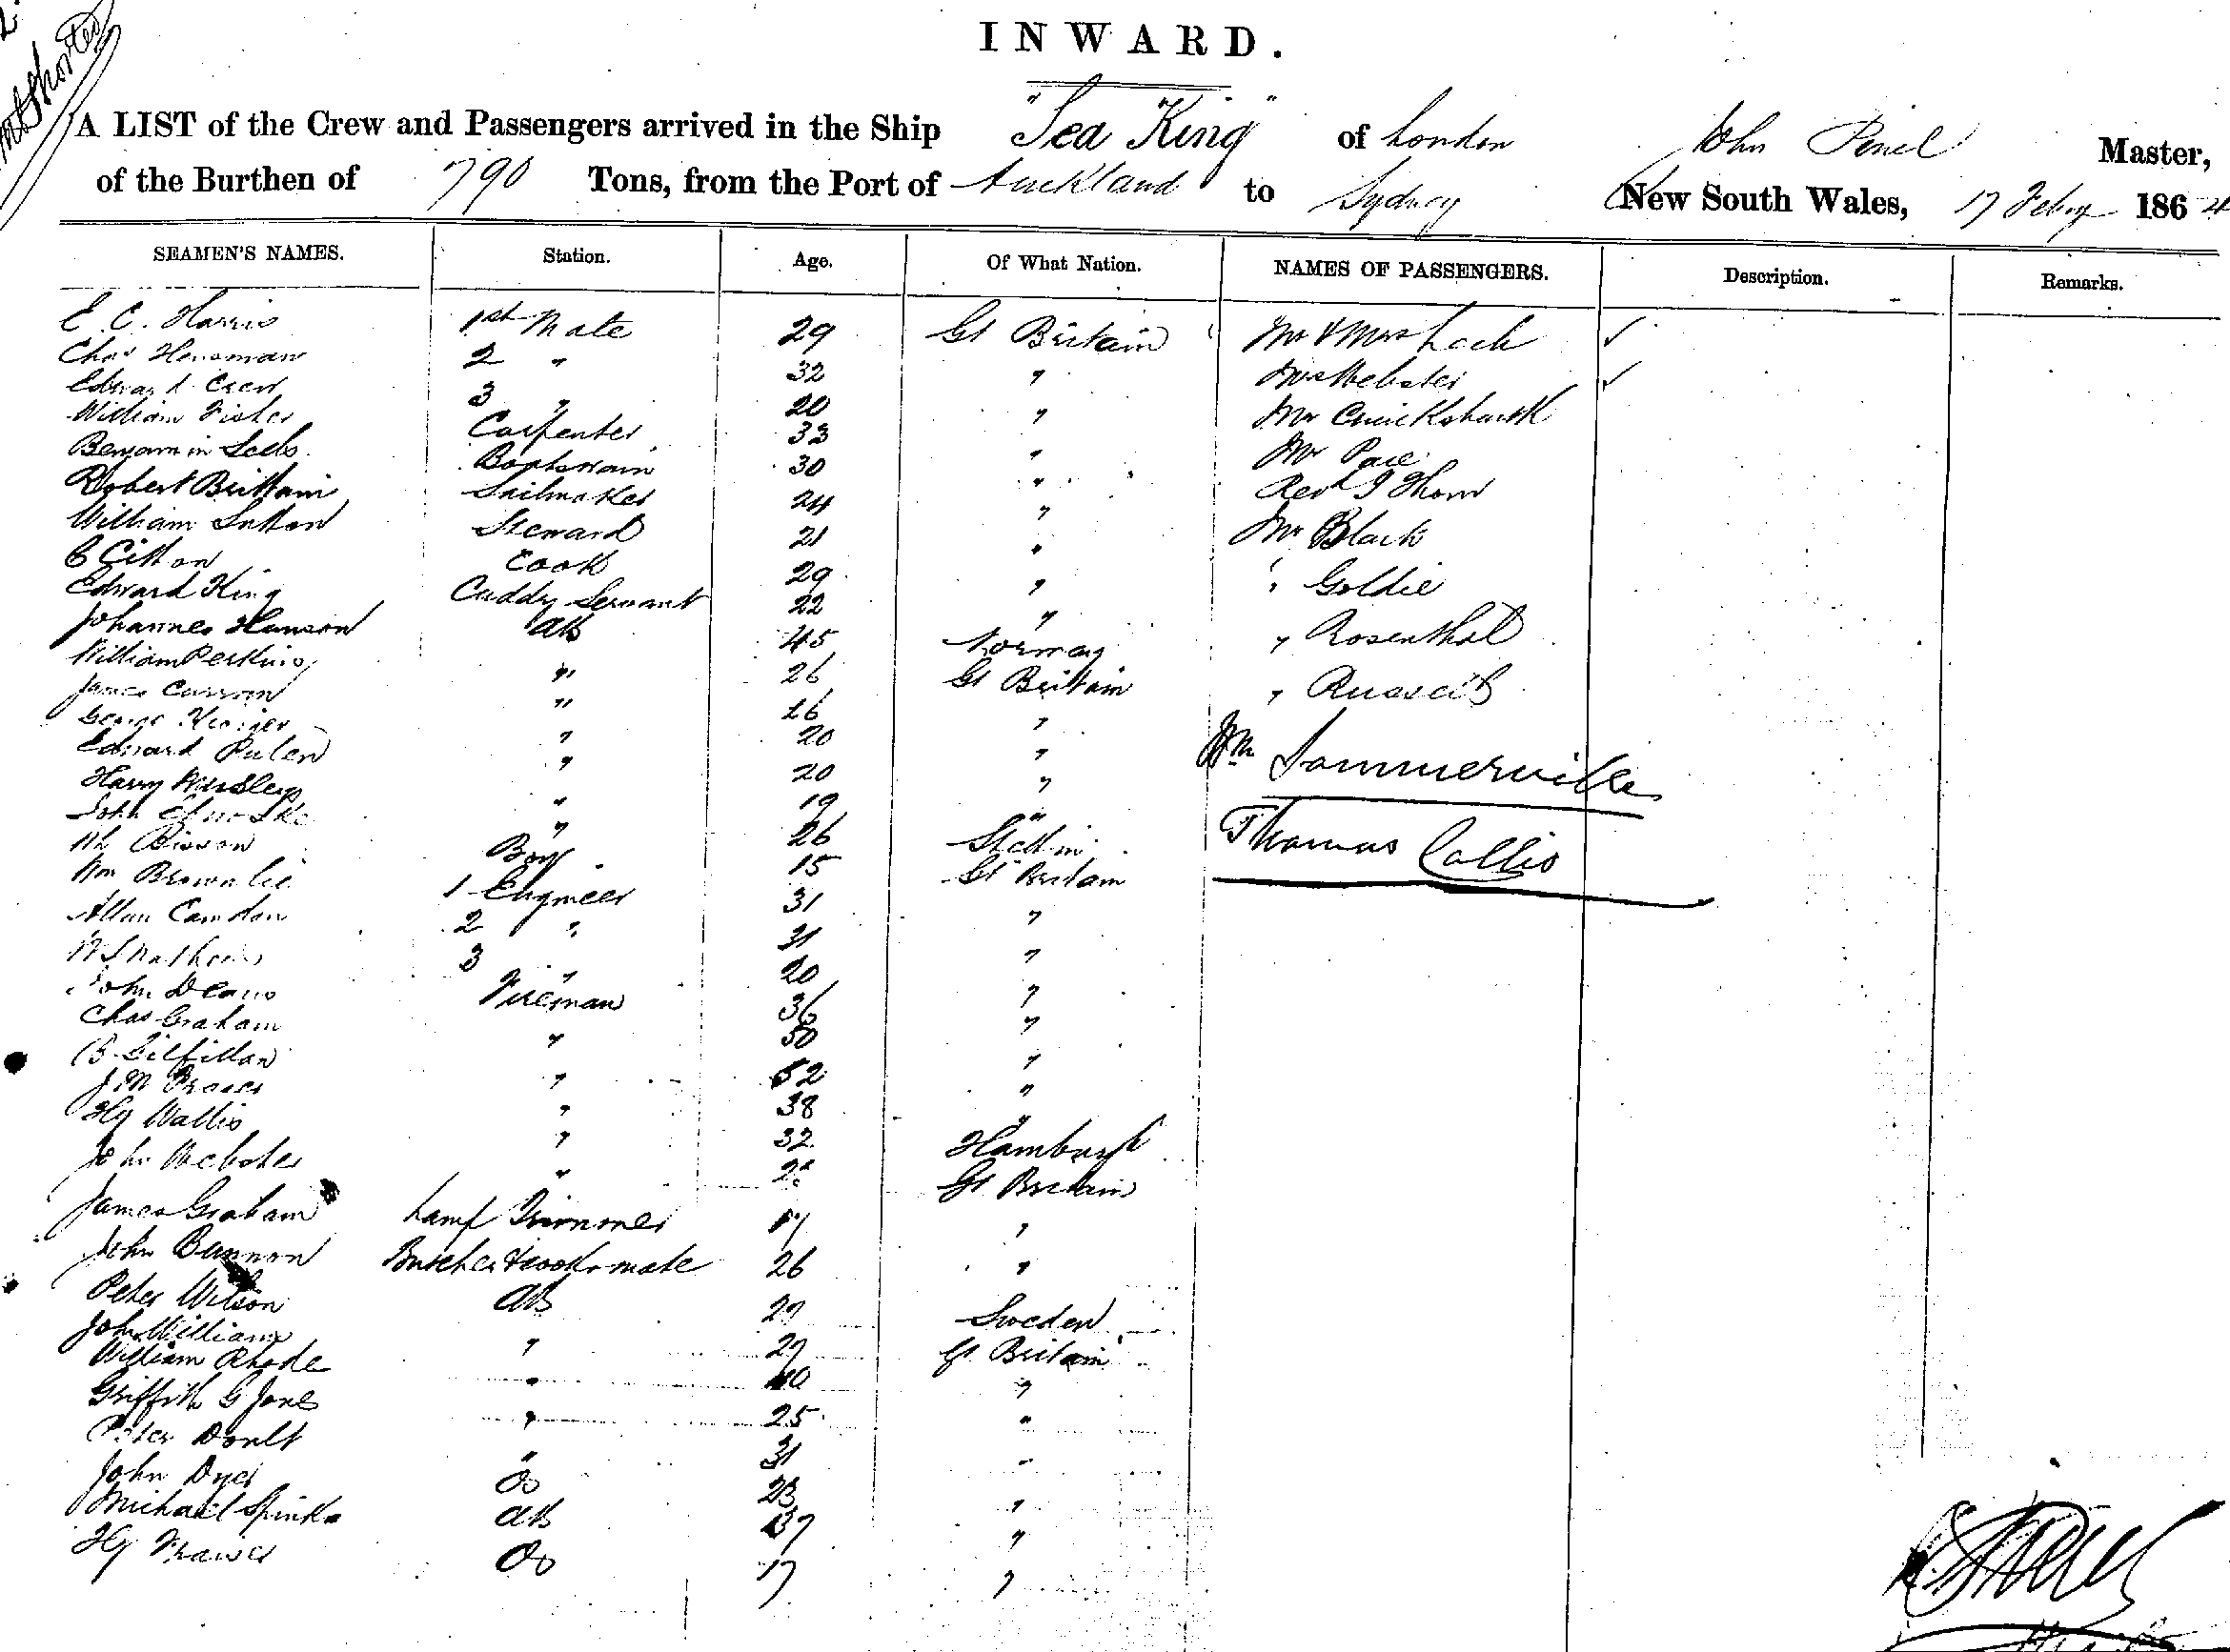 INWARD.
A LIST of the Crew and Passengers arrived in the Ship "Sea King" of London John Master,
of the Burthen of 790 Tons, from the Port of Auckland to Sydney New South Wales, 17 Feby 1864
SEAMEN'S NAMES. Station. Age. Of What Nation. NAMES OF PASSENGERS. Description. Remarks.
E. C. Harris 1st Mate 29 Gt Britain Mr & Mrs ✓
Chas 2 " 32 " Webster ✓
Edward Crew 3 " 20 " Mr Cruickshank
William Fisher Carpenter 33 " Mr
Benjamin Boatswain 30 " Revd Thom
Robert Brittain Sailmaker 24 " Mr Black
William Sutton Steward 21 " " Goldie
C Citton Cook 29 " " Rosenthal
Edward King Cuddy Servant 22 " " Russell
Johannes Hanson AB 45 Norway Wm Sommerville
William Perkins " 26 Gt Britain Thomas Callis
James Curran " 26 "
George " 20 "
Edward " 20 "
Harry " 19 "
John " 26 Stettin
Bisson Boy 15 Gt Britain
Wm Brownlie 1 Engineer 31 "
Allan 2 " 31 "
3 " 20 "
John Deans Fireman 36 "
Chas Graham " 50 "
Gilfillan " 52 "
J M Fraser " 38 "
Hy Wallis " 32 Hamburgh
John Webster " Gt Britain
James Graham Lamp Trimmer 17 "
John Bannon Butcher & Cooks mate 26 "
Peter Wilson AB 29 Sweden
John Williams " 29 Gt Britain
William Rhode " 40 "
Griffith G Jones " 25 "
Peter Doult " 31 "
John Dyer Os 23 "
Michael Spinks AB 37 "
Hy Os 17 "